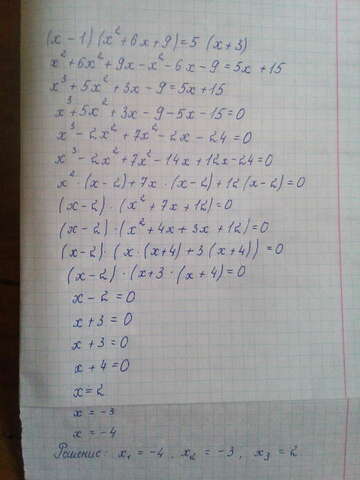 (x-1)(x²+6x+9)=5(x+3)
x²+6x²+9x-x²-6x-9=5x+15
x³+5x²+3x-9=5x+15
x³+5x²+3x-9-5x-15=0
x³-2x²+7x²-2x-24=0
x³-2x²+7x²-14x+12x-24=0
x²·(x-2)+7x·(x-2)+12(x-2)=0
(x-2)·(x²+7x+12)=0
(x-2)·(x²+4x+3x+12)=0
(x-2)·(x·(x+4)+3(x+4))=0
(x-2)·(x+3·(x+4)=0
x-2=0
x+3=0
x+3=0
x+4=0
x=2
x=-3
x=-4
Решение: x₁=-4, x₂=-3, x₃=2